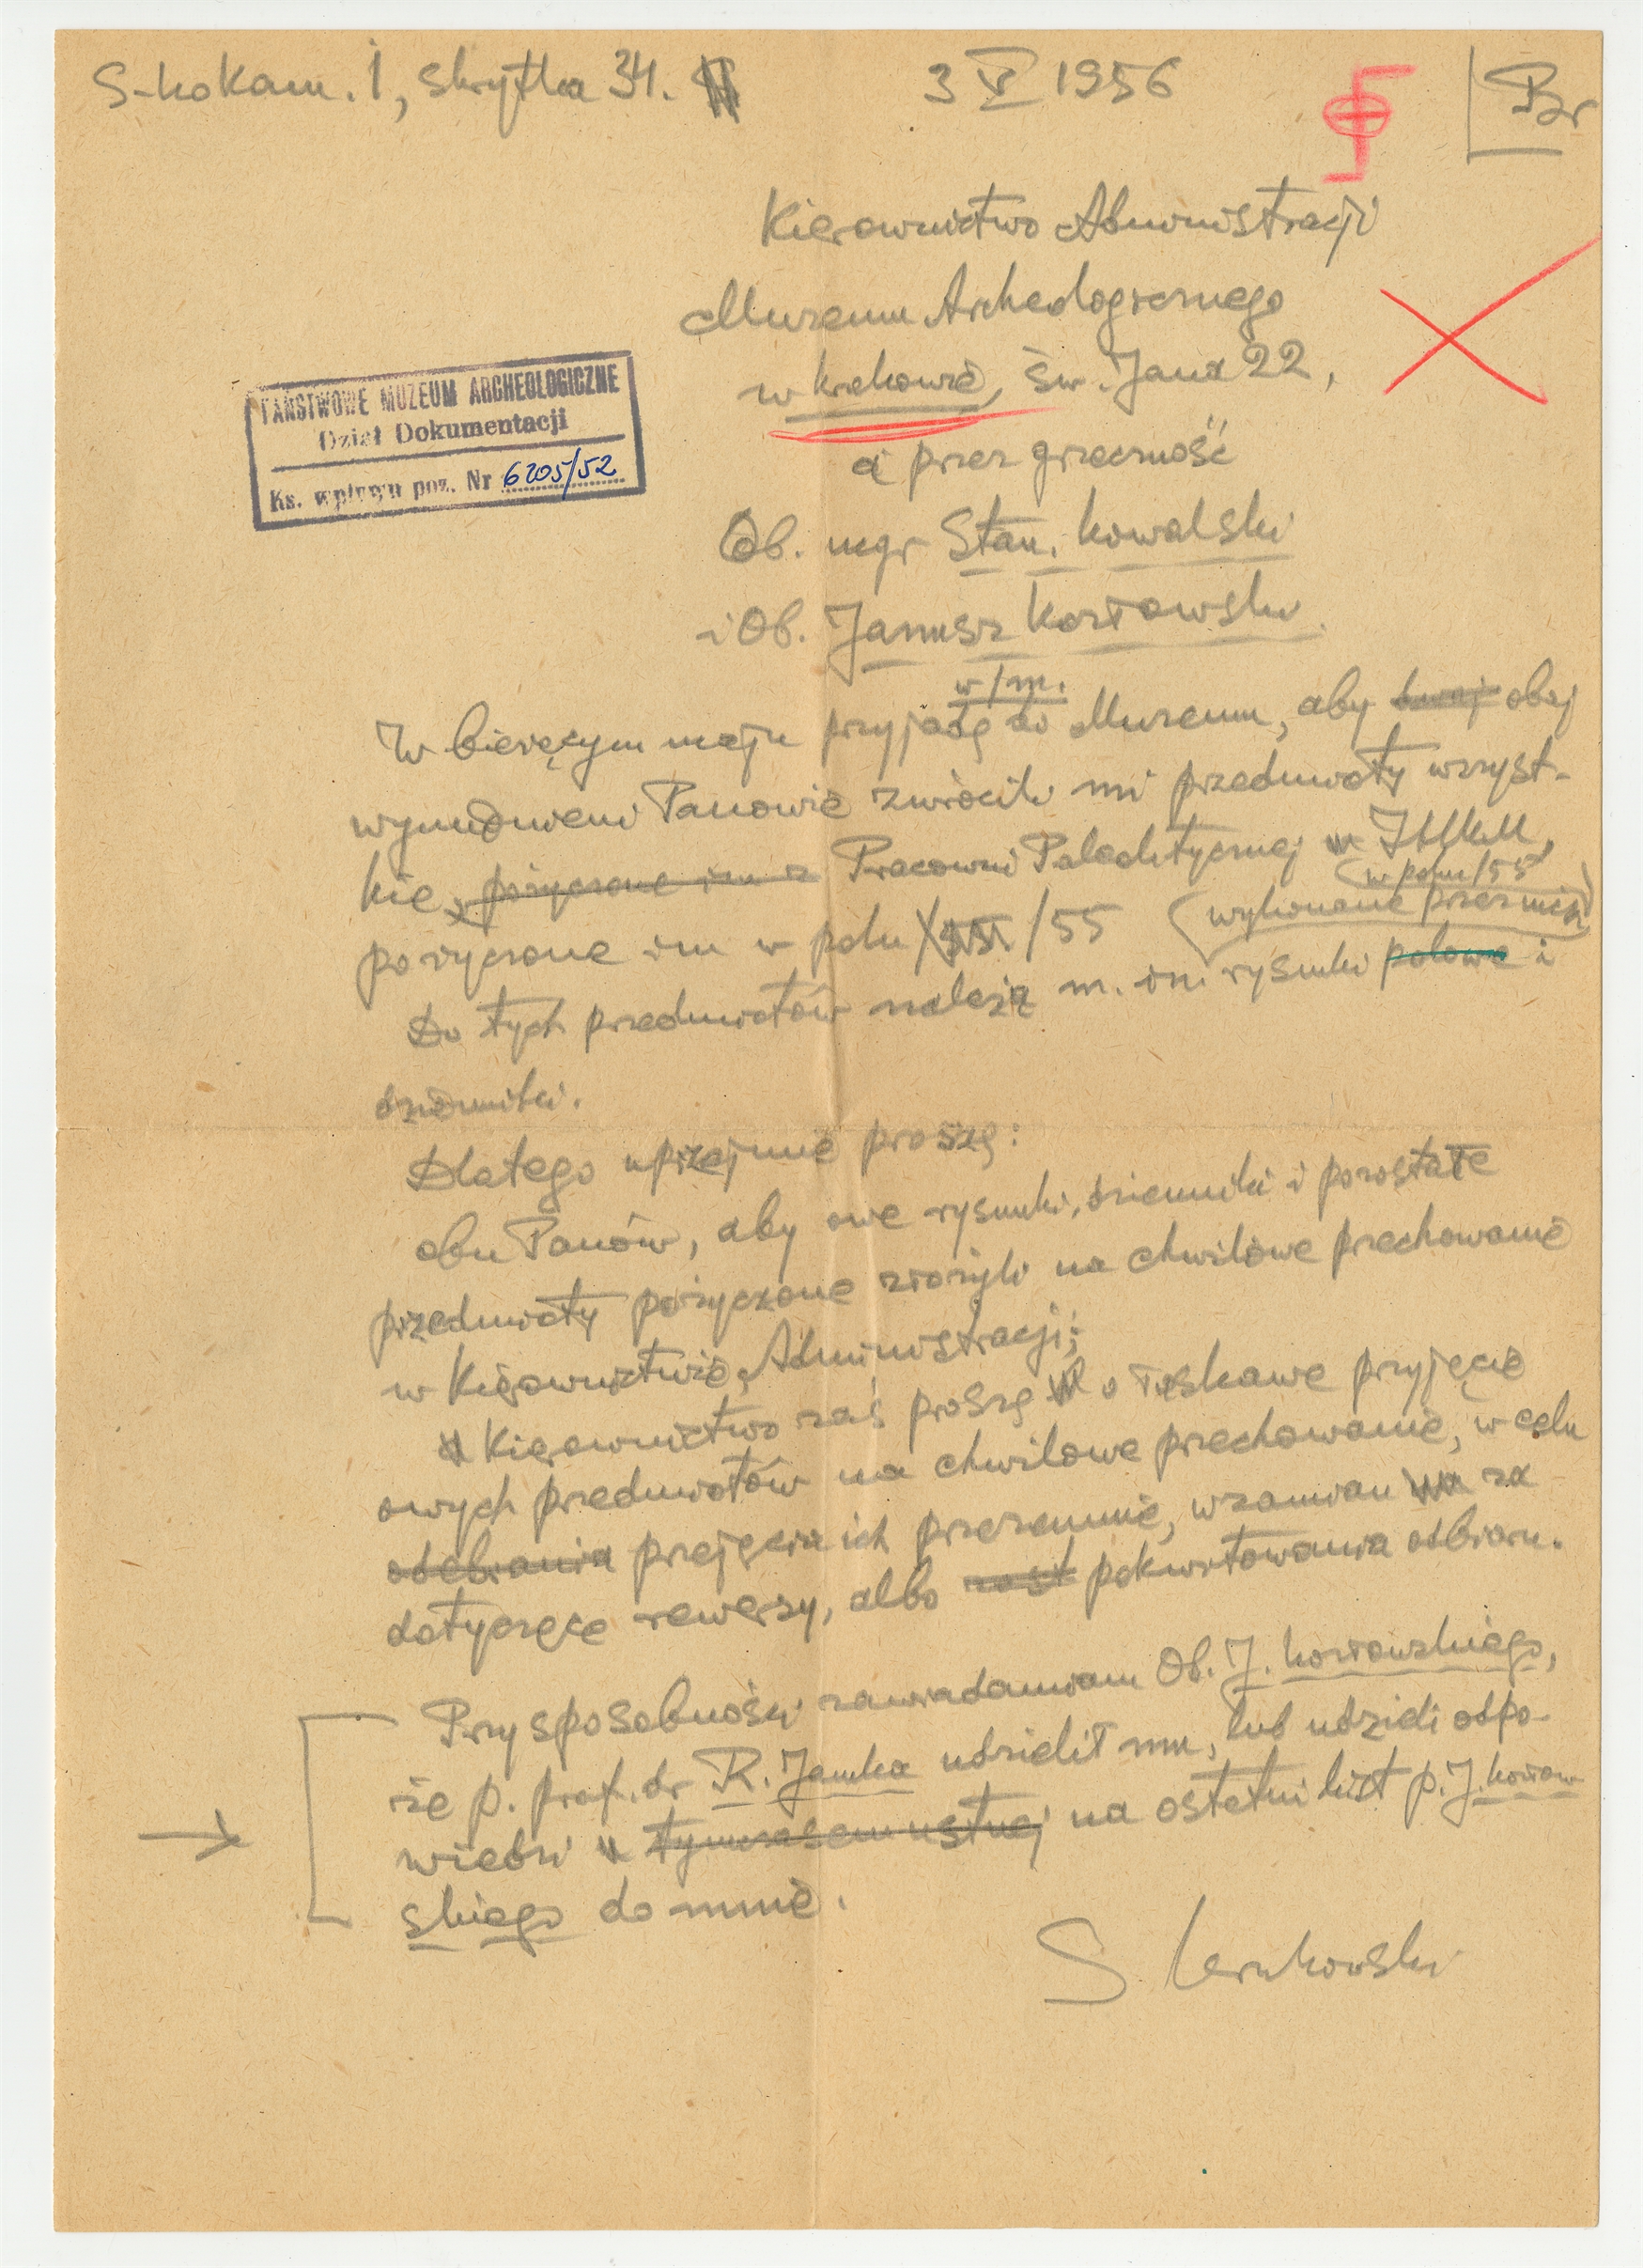 S-ko kam. 1, skrytka 34.
3 V 1956
Br
Kierownictwo Administracji
Muzeum Archeologicznego
w Krakowie, św. Jana 22,
a przez grzeczność
Ob. mgr Stan. Kowalski
i Ob. Janusz Kozłowski
w/m.
PAŃSTWOWE MUZEUM ARCHEOLOGICZNE
Dział Dokumentacji
Ks. wpływu poz. Nr 6205/52
W bieżącym maju przyjadę do Muzeum, aby dwaj obaj
wymienieni Panowie zwrócili mi przedmioty wszyst-
kie, pożyczone im z Pracowni Paleolitycznej IHKM,
pożyczone im w polu /55
(w polu/55)
(wykonane przez nich)
Do tych przedmiotów należą m. in. rysunki polowe i
dzienniki.
Dlatego uprzejmie proszę:
obu Panów, aby owe rysunki, dzienniki i pozostałe
przedmioty pożyczone złożyli na chwilowe przechowanie
w Kierownictwie Administracji;
Kierownictwo zaś proszę o łaskawe przyjęcie
owych przedmiotów na chwilowe przechowanie, w celu
odebrania przejęcia ich przezemnie, wzamian za
dotyczące rewersy, albo pokwitowania odbioru.
Przy sposobności zawiadamiam Ob. J. Kozłowskiego,
że p. prof. dr R. Jamka udzielił mu, lub udzieli odpo-
wiedzi tymczasem ustnej na ostatni list p. J. Kozłow-
skiego do mnie.
S Krukowski